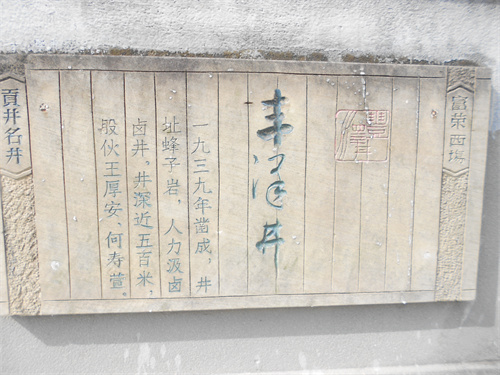 富荣西場
豐澤井
丰泽井
一九三九年凿成，井
址蜂子岩，人力汲卤
卤井，井深近五百米，
股伙王厚安、何寿萱。
貢井名井